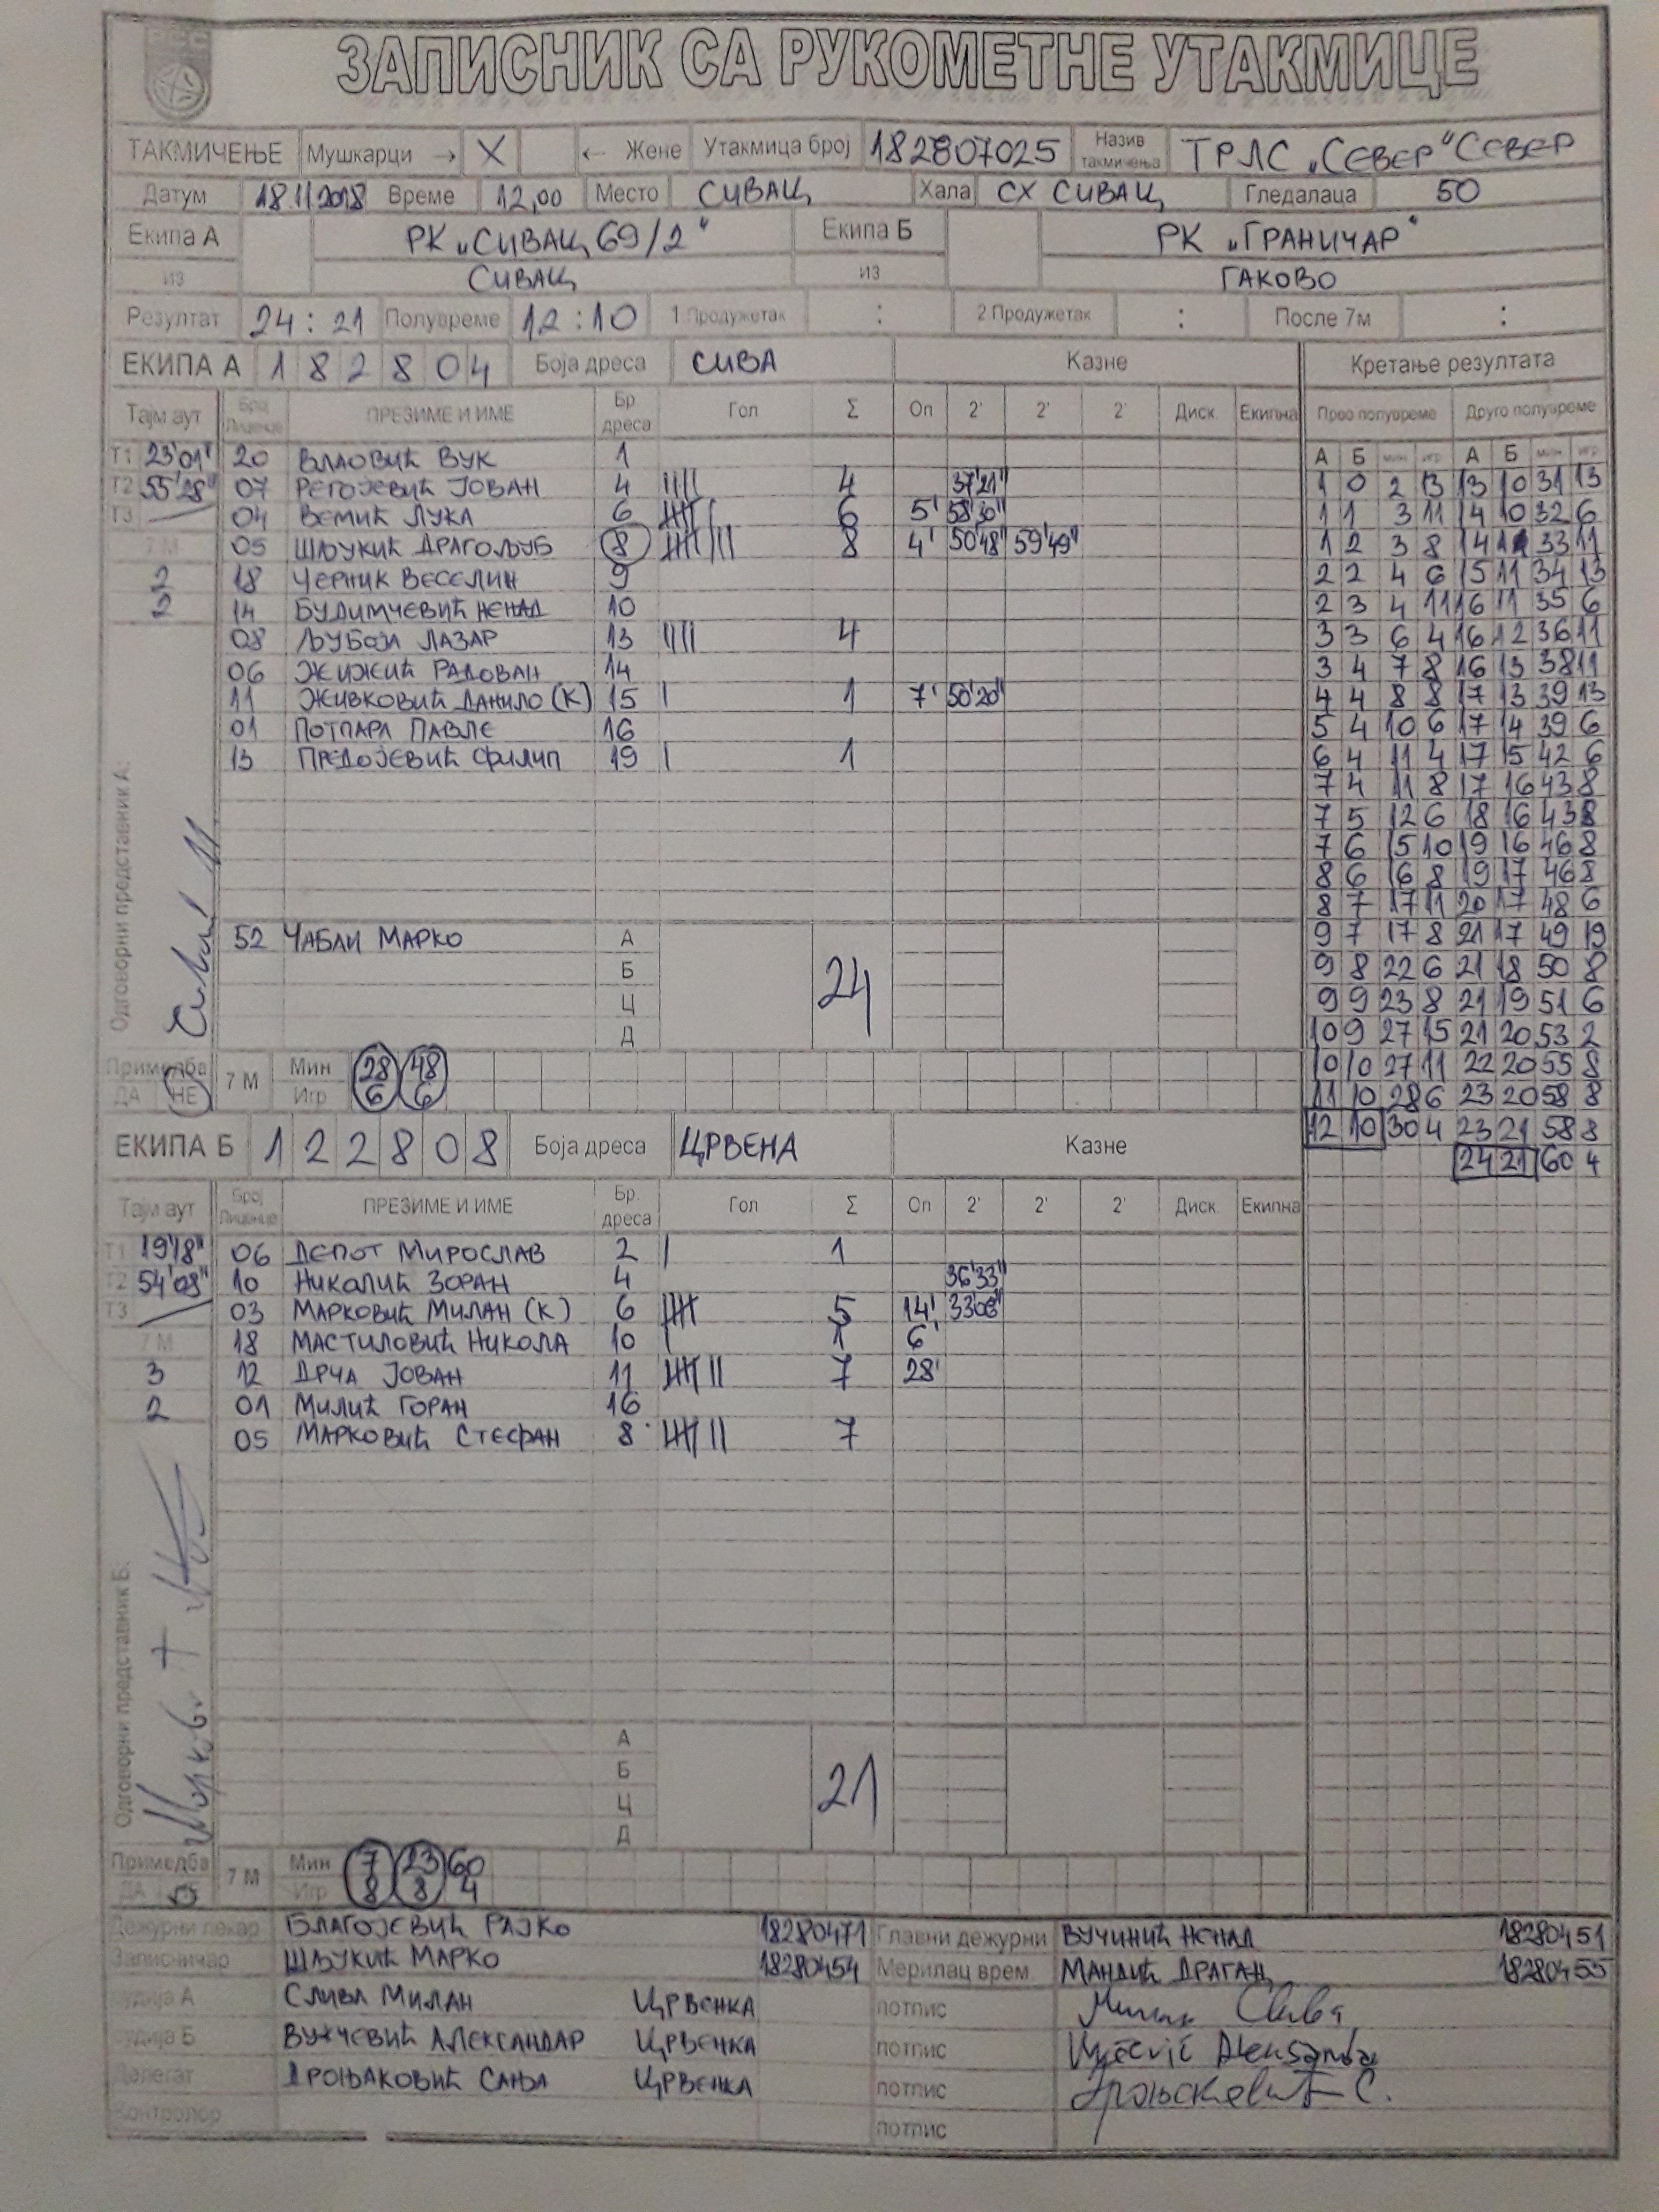 ЗАПИСНИК СА РУКОМЕТНЕ УТАКМИЦЕ
ТАКМИЧЕЊЕ Мушкарци → X ← Жене Утакмица број 182807025 Назив такмичења ТРЛС „СЕВЕР" СЕВЕР
Датум 18.11.2018 Време 12,00 Место СИВАЦ Хала СХ СИВАЦ Гледалаца 50
Екипа А РК „СИВАЦ 69/2" Екипа Б РК „ГРАНИЧАР"
из СИВАЦ из ГАКОВО
Резултат 24 : 21 Полувреме 12 : 10 1 Продужетак : 2 Продужетак : После 7м :
ЕКИПА А 1 8 2 8 0 4 Боја дреса СИВА Казне Кретање резултата
Тајм аут Број Лиценце ПРЕЗИМЕ И ИМЕ Бр. дреса Гол Σ Оп 2' 2' 2' Диск. Екипна Прво полувреме Друго полувреме
Т1 23'01" 20 ВЛАОВИЋ ВУК 1 А Б мин игр А Б мин игр
Т2 55'28" 07 РЕГОЈЕВИЋ ЈОВАН 4 |||| 4 37'21" 1 0 2 13 13 10 31 13
Т3 04 ВЕМИЋ ЛУКА 6 6 5' 58'30" 1 1 3 11 14 10 32 6
7 М 05 ШЉУКИЋ ДРАГОЉУБ 8 8 4' 50'48" 59'49" 1 2 3 8 14 11 33 11
2 18 ЧЕРНИК ВЕСЕЛИН 9 2 2 4 6 15 11 34 13
2 14 БУДИМЧЕВИЋ НЕНАД 10 2 3 4 11 16 11 35 6
08 ЉУБОЈА ЛАЗАР 13 |||| 4 3 3 6 4 16 12 36 11
06 ЖИЖИЋ РАДОВАН 14 3 4 7 8 16 13 38 11
11 ЖИВКОВИЋ ДАНИЛО (К) 15 | 1 7' 50'20" 4 4 8 8 17 13 39 13
01 ПОТПАРА ПАВЛЕ 16 5 4 10 6 17 14 39 6
13 ПРЕДОЈЕВИЋ ФИЛИП 19 | 1 6 4 11 4 17 15 42 6
7 4 11 8 17 16 43 8
7 5 12 6 18 16 43 8
7 6 15 10 19 16 46 8
8 6 16 8 19 17 46 8
8 7 17 11 20 17 48 6
52 ЧАБЛИ МАРКО А 24 9 7 17 8 21 17 49 19
Б 9 8 22 6 21 18 50 8
Ц 9 9 23 8 21 19 51 6
Д 10 9 27 15 21 20 53 2
Одговорни представник А:
Примедба 7 М Мин 28 48 10 10 27 11 22 20 55 8
ДА НЕ Игр 6 6 11 10 28 6 23 20 58 8
ЕКИПА Б 1 2 2 8 0 8 Боја дреса ЦРВЕНА Казне 12 10 30 4 23 21 58 8
24 21 60 4
Тајм аут Број Лиценце ПРЕЗИМЕ И ИМЕ Бр. дреса Гол Σ Оп 2' 2' 2' Диск. Екипна
Т1 19'18" 06 ДЕПОТ МИРОСЛАВ 2 | 1
Т2 54'08" 10 НИКОЛИЋ ЗОРАН 4 36'33"
Т3 03 МАРКОВИЋ МИЛАН (К) 6 5 14' 33'08"
7 М 18 МАСТИЛОВИЋ НИКОЛА 10 | 1 6'
3 12 ДРЧА ЈОВАН 11 7 28'
2 01 МИЛИЋ ГОРАН 16
05 МАРКОВИЋ СТЕФАН 8 7
А
Б 21
Ц
Д
Одговорни представник Б:
Примедба 7 М Мин 7 23 60
ДА Игр 8 8 4
Дежурни лекар БЛАГОЈЕВИЋ РАЈКО 18280471 Главни дежурни ВУЧИНИЋ НЕНАД 18280451
Записничар ШЉУКИЋ МАРКО 18280454 Мерилац врем. МАНДИЋ ДРАГАН 18280455
Судија А СЛИВА МИЛАН ЦРВЕНКА потпис Милан Слива
Судија Б ВУЈЧЕВИЋ АЛЕКСАНДАР ЦРВЕНКА потпис
Делегат ДРОЊАКОВИЋ САЊА ЦРВЕНКА потпис Дроњаковић С.
Контролор потпис